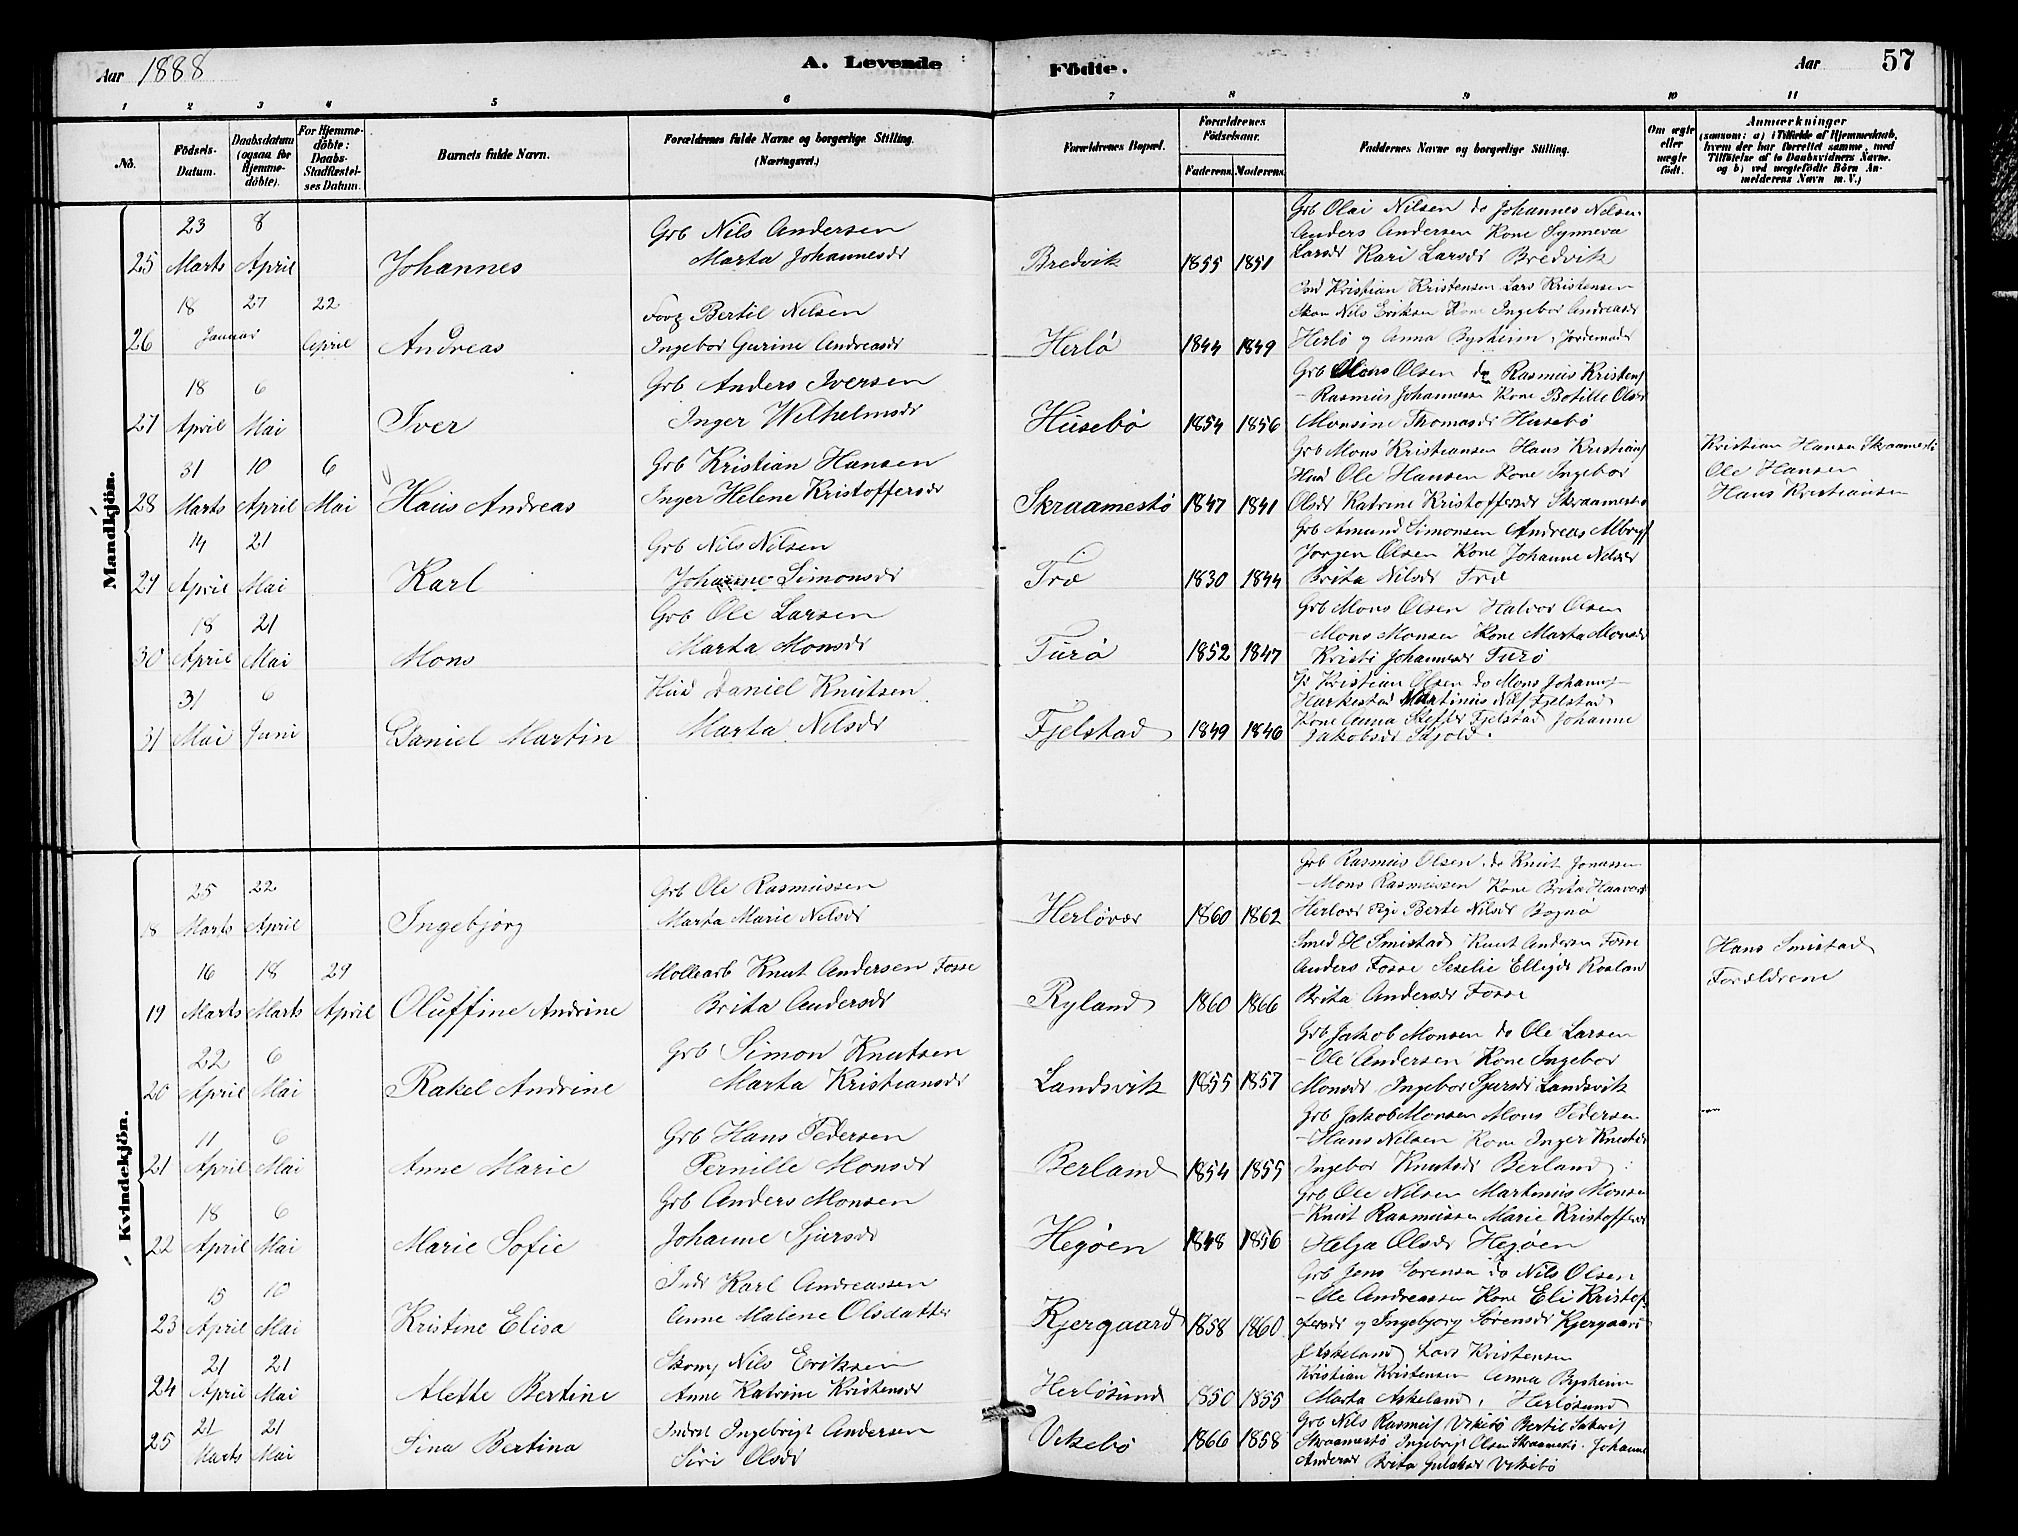 Aar 1888
A. Levende
Födte.
Aar
57
1 2 3 4 5 6 7 8 9 10 11
No.
Födsels-Datum.
Daabsdatum (ogsaa for Hjemme-döbte).
For Hjemme-döbte: Daabs-Stadfæstel-ses Datum.
Barnets fulde Navn.
Forældrenes fulde Navne og borgerlige Stilling. (Næringsvei.)
Forældrenes Bopæl.
Forældrenes Födselsaar.
Faderens. Moderens.
Faddernes Navne og borgerlige Stilling.
Om ægte eller uægte födt.
Anmærkninger
(saasom: a) i Tilfælde af Hjemmedaab, hvem der har forrettet samme, med Tilföielse af to Daabsvidners Navne. og b) ved uægtefödte Börn An-melderens Navn m. V.)
Mandkjön.
25 23 Marts 8 April Johannes
Grb Nils Andersen
Marta Johannesdr
Bredvik 1855 1851
Grb Olai Nilsen do Johannes Nilsen
Anders Andersen Kone Synneva
Larsdr Kari Larsdr Bredvik
26 18 27 Januar 22 April Andreas
Forp Bertil Nilsen
Ingebor Gurine Andreasdr
Herlø 1844 1849
Kristian Kristensen Lars Kristensen
Skom Nils Eriksen Kone Ingebor Andreasdr
Herlø og Anna Bysheim Jordemodr
27 18 April 6 Mai Iver
Grb Anders Iversen
Inger Wilhelmsdr
Husebø 1854 1856
Grb Olsen do Rasmus Kristens
- Rasmus Johannessen Kone Botille Olsdr
Monsine Thomasdr Husebø
28 31 Marts 10 April 6 Mai Hans Andreas
Grb Kristian Hansen
Inger Helene Kristoffersdr
Skraamestø 1847 1841
Grb Mons Kristiansen Hans Kristians
Husd Ole Hansen Kone Ingebor
Olsdr Katrine Kristoffersdr Skraamestø
Kristian Hansen Skraamestø
Ole Hansen
Hans Kristiansen
29 14 April 21 Mai Karl
Grb Nils Nilsen
Johanne Simonsdr
Træ 1830 1844
Grb Amund Simonsen Andreas
Jorgen Olsen Kone Johanne Nilsdr
Brita Nilsdr Træ
30 18 April 21 Mai Mons
Grb Ole Larsen
Marta Monsdr
Turø 1852 1847
Grb Mons Olsen Halvor Olsen
- Mons Monsen Kone Marta Monsdr
Kristi Johannesdr Turø
31 31 Mai 6 Juni Daniel Martin
Husd Daniel Knutsen
Marta Nilsdr
Fjelstad 1849 1846
Kristian Olsen do Mons Johanns
Harkestad Martinus Nils Fjelstad
Kone Anna Fjelstad Johanne
Jakobsdr Skjold.
Kvindekjön.
18 25 Marts 22 April Ingebjørg
Grb Ole Rasmussen
Marta Marie Nilsdr
Herløvær 1860 1862
Grb Rasmus Olsen do Knut Jonassen
- Mons Rasmussen Kone Brita Haavars
Herlovær Pige Berte Nilsdr Bognø
19 16 Marts 18 Marts 29 April Oluffine Andrine
Møllearb Knut Andersen Fosse
Brita Andersdr
Ryland 1860 1866
Smed H Smistad Knut Andersen Fosse
Anders Fosse Seselie Roslan
Brita Andersdr Fosse
Hans Smistad
Forældrene
20 22 April 6 Mai Rakel Andrine
Grb Simon Knutsen
Marta Kristiansdr
Landsvik 1855 1857
Grb Jakob Monsen do Ole Larsen
- Ole Andersen Kone Ingebor
Monsdr Ingebor Sjursdr Landsvik
21 11 April 6 Mai Anne Marie
Grb Hans Pedersen
Pernille Monsdr
Berland 1854 1855
Grb Jakob Monsen Mons Pedersen
- Hans Nilsen Kone Inger Knutsdr
Ingebor Knutsdr Berland
22 18 April 6 Mai Marie Sofie
Grb Anders Monsen
Johanne Sjursdr
Hegøen 1848 1856
Grb Ole Nilsen Martinus Monsen
- Knut Rasmussen Marie Kristoffersdr
Helga Olsdr Hegøen
23 15 April 10 Mai Kristine Elisa
Indr Karl Andreassen
Anne Malene Olsdatter
Kjergaard 1858 1860
Grb Jens Sorensen do Nils Olsen
- Ole Andreassen Kone Eli Kristof-
fersdr og Ingebjorg Sørensdr Kjergaard
24 21 April 21 Mai Alette Bertine
Skom Nils Eriksen
Anne Katrine Kristensdr
Herløsund 1850 1855
J Askeland Lars Kristensen
Kristian Kristensen Anna Bysheim
Marta Askeland, Herløsund
25 21 Marts 21 Mai Sina Bertina
Inderst Ingebrigt Andersen
Siri Olsdr
Vikebø 1866 1858
Grb Nils Rasmus Vikebø Bertil
Skraamestø Ingebrigt Olsen Skraamestø. Johanne
Andersdr Brita Vikebø